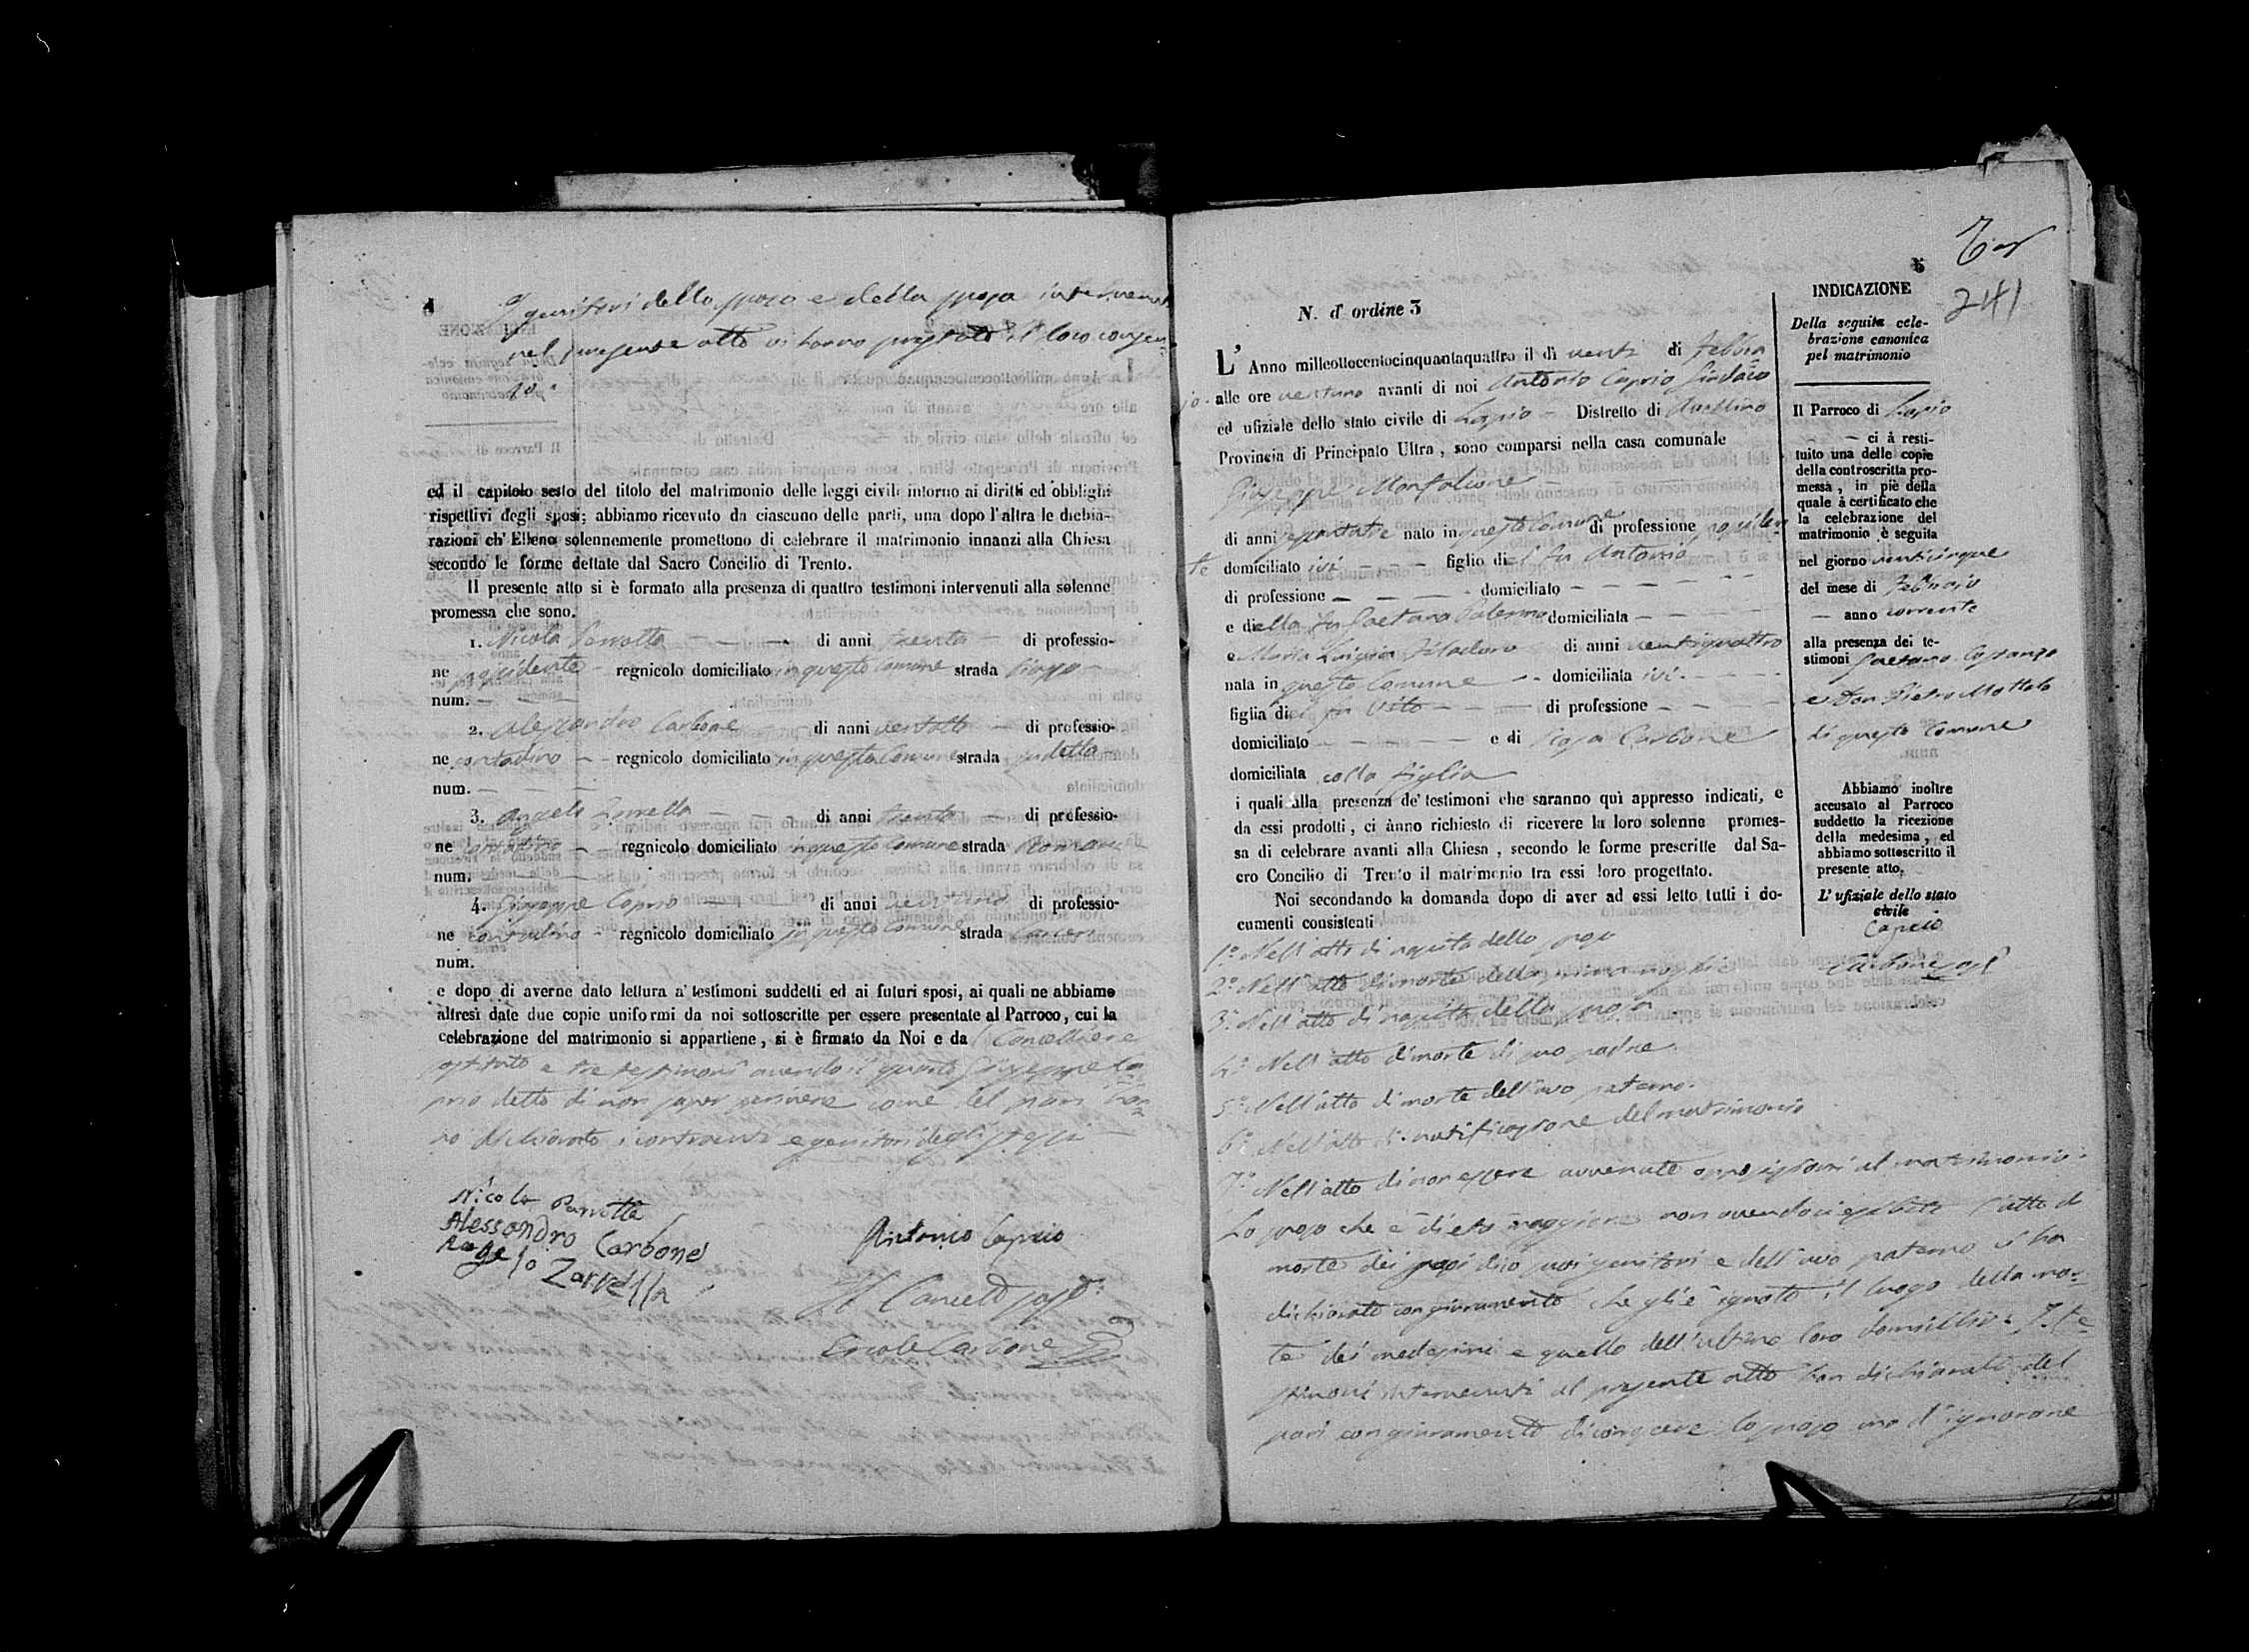 4
I genitori dello sposo e della sposa intervenuti
nel presente atto vi hanno prestato il loro consen-
to.
ed il capitolo sesto del titolo del matrimonio delle leggi civili intorno ai diritti ed obblighi
rispettivi degli sposi; abbiamo ricevuto da ciascuno delle parti, una dopo l'altra le dichia-
razioni ch'Elleno solennemente promettono di celebrare il matrimonio innanzi alla Chiesa
secondo le forme dettate dal Sacro Concilio di Trento.
Il presente atto si è formato alla presenza di quattro testimoni intervenuti alla solenne
promessa che sono.
1. Nicola Parrotta di anni trenta di professio-
ne possidente regnicolo domiciliato in questo Comune strada
num.
2. Alessandro Carbone di anni ventotto di professio-
ne contadino regnicolo domiciliato in questo Comune strada sudetta
num.
3. Angelo Zarrella di anni trenta di professio-
ne contadino regnicolo domiciliato in questo Comune strada
num.
4. Giuseppe Caprio di anni ventuno di professio-
ne contadino regnicolo domiciliato in questo Comune strada
num.
e dopo di averne dato lettura a' testimoni suddetti ed ai futuri sposi, ai quali ne abbiamo
altresì date due copie uniformi da noi sottoscritte per essere presentate al Parroco, cui la
celebrazione del matrimonio si appartiene, si è firmato da Noi e da Cancelliere
sostituto e tre testimoni avendo il quarto Giuseppe Ca
prio detto di non saper scrivere come del pari han
no dichiarato i contraenti e genitori degli stessi
Nicola Parrotta
Alessandro Carbone
Angelo Zarrella
Antonio Caprio
Il Cancell. sost.
Ercole Carbone
5
241
N. d' ordine 3
L' Anno milleottocentocinquantaquattro il dì venti di Febbra
jo alle ore ventuno avanti di noi Antonio Caprio Sindaco
ed ufiziale dello stato civile di Lapio Distretto di Avellino
Provincia di Principato Ultra, sono comparsi nella casa comunale
Giuseppe Monfalcone
di anni nato in questo Comune di professione possiden
te domiciliato ivi figlio del fu Antonio
di professione domiciliato
e della fu Gaetana Palermo domiciliata
e Maria Luigia Filadoro di anni ventiquattro
nata in questo Comune domiciliata ivi
figlia di fu Vito di professione
domiciliato e di Rosa Carbone
domiciliata colla figlia
i quali alla presenza de' testimoni che saranno quì appresso indicati, e
da essi prodotti, ci ànno richiesto di ricevere la loro solenne promes-
sa di celebrare avanti alla Chiesa, secondo le forme prescritte dal Sa-
cro Concilio di Trento il matrimonio tra essi loro progettato.
Noi secondando la domanda dopo di aver ad essi letto tutti i do-
cumenti consistenti
1° Nell'atto di nascita dello sposo
2° Nell'atto di morte della prima moglie
3° Nell'atto di nascita della sposa
4° Nell'atto di morte di suo padre
5° Nell'atto di morte dell'avo paterno.
6° Nell'atto di notificazione del matrimonio
7° Nell'atto di non essere avvenute opposizioni al matrimonio.
Lo sposo che è di età maggiore non avendoci esibito l'atto di
morte dei suoi genitori e dell'avo paterno ci ha
dichiarato con giuramento che gli è ignoto il luogo della mor-
te dei medesimi e quello dell'ultimo loro domicilio. I te-
stimoni intervenuti al presente atto han dichiarato del
pari con giuramento di conoscere lo sposo ma d'ignorare
INDICAZIONE
Della seguita cele-
brazione canonica
pel matrimonio
Il Parroco di Lapio
ci à resti-
tuito una delle copie
della controscritta pro-
messa, in piè della
quale à certificato che
la celebrazione del
matrimonio è seguita
nel giorno venticinque
del mese di Febbraio
anno corrente
alla presenza dei te-
stimoni Gaetano Costanzo
e Don Pietro Mottola
di questo Comune
Abbiamo inoltre
accusato al Parroco
suddetto la ricezione
della medesima, ed
abbiamo sottoscritto il
presente atto.
L' ufiziale dello stato
civile
Caprio
Carbone sost.